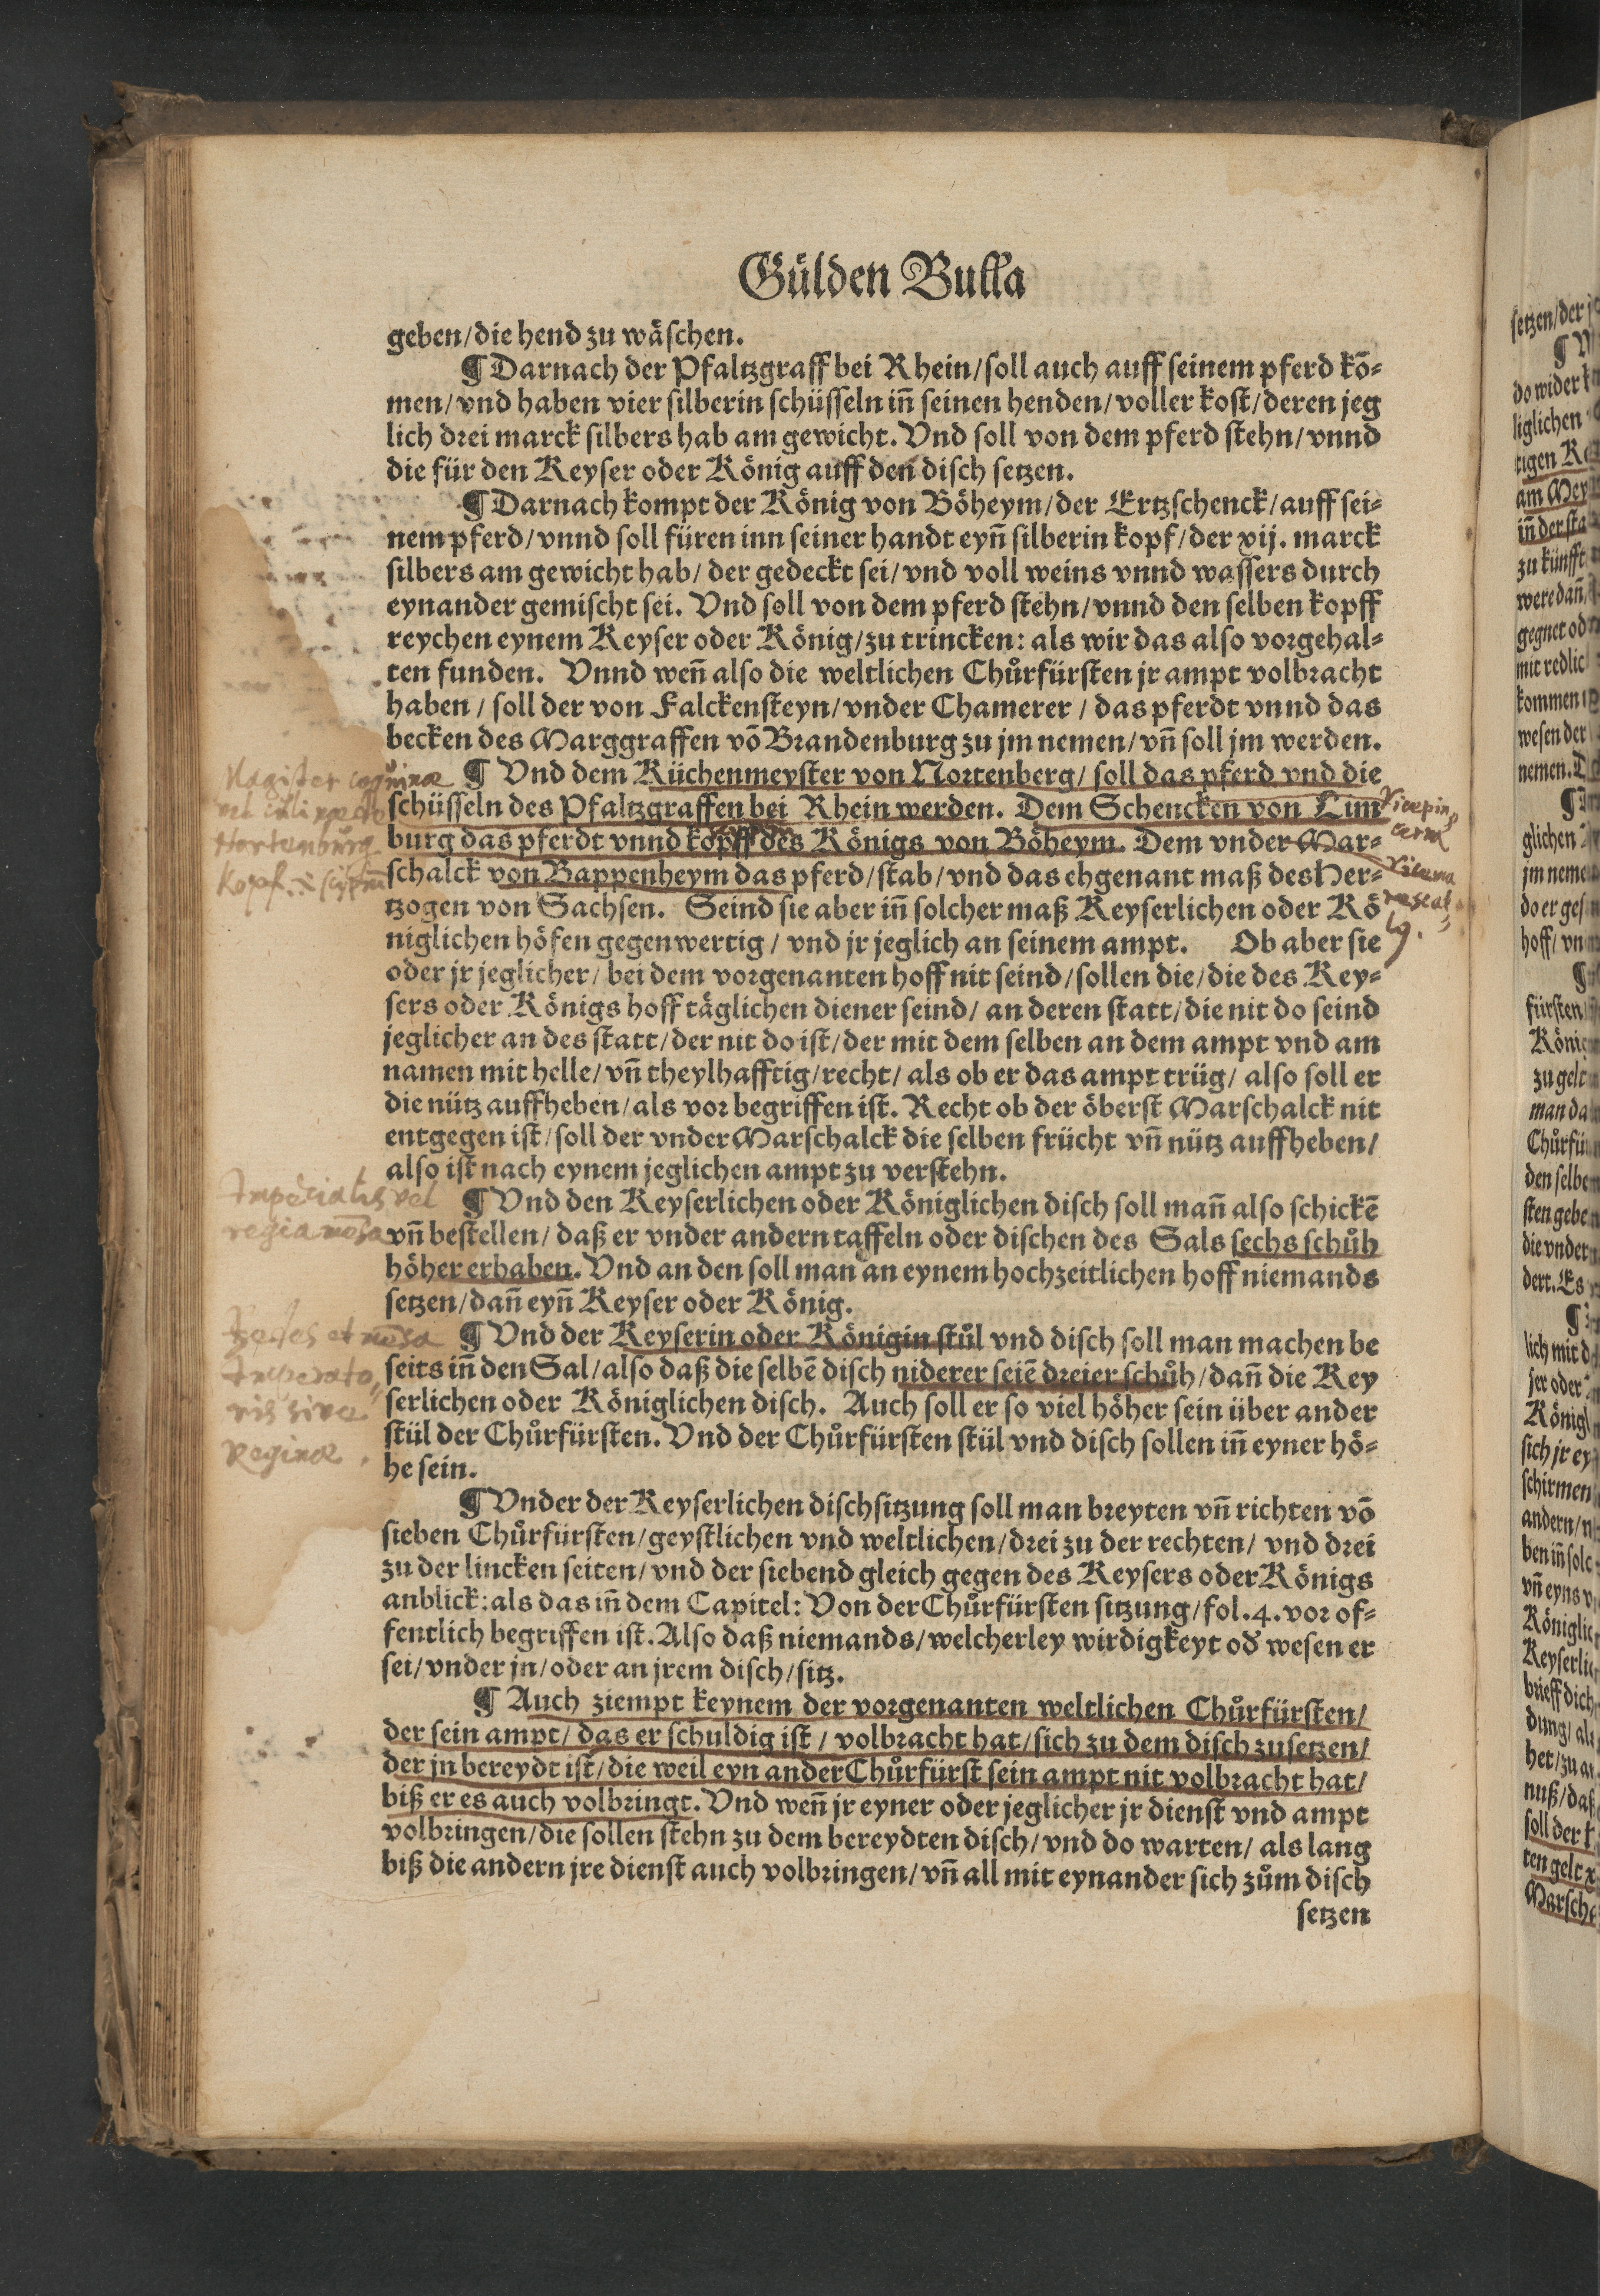 Gülden Bulla
geben/die hend zu wäſchen.
¶ Darnach der Pfaltzgraff bei Rhein/ſoll auch auff ſeinem pferd kō⸗
men/vnd haben vier ſilberin ſchüſſeln iñ ſeinen henden/voller koſt/deren jeg
lich drei marck ſilbers hab am gewicht. Vnd ſoll von dem pferd ſtehn/vnnd
die für den Keyſer oder König auff den diſch ſetzen.
¶ Darnach kompt der König von Böheym/der Ertzſchenck/auff ſei⸗
nem pferd/vnnd ſoll füren inn ſeiner handt eyñ ſilberin kopf/der xij. marck
ſilbers am gewicht hab/ der gedeckt ſei/vnd voll weins vnnd waſſers durch
eynander gemiſcht ſei. Vnd ſoll von dem pferd ſtehn/vnnd den ſelben kopff
reychen eynem Keyſer oder König/zu trincken: als wir das alſo vorgehal⸗
ten funden. Vnnd weñ alſo die weltlichen Chůrfürſten jr ampt volbracht
haben / ſoll der von Falckenſteyn/vnder Chamerer / das pferdt vnnd das
becken des Marggraffen vō Brandenburg zu jm nemen/vñ ſoll jm werden.
Magister coquinae ¶ Vnd dem Küchenmeyſter von Nortenberg/ ſoll das pferd vnd die
ſchüſſeln des Pfaltzgraffen bei Rhein werden. Dem Schencken von Lim Vicepin
Nortenbůrg burg das pferdt vnnd kopff des Königs von Böheym. Dem vnder Mar⸗ cerna
Kopf ſchalck von Bappenheym das pferd/ſtab/vnd das ehgenant maß des Her⸗ Vicema
tzogen von Sachſen. Seind ſie aber iñ ſolcher maß Keyſerlichen oder Kö rescal
niglichen höfen gegenwertig / vnd jr jeglich an ſeinem ampt. Ob aber ſie
oder jr jeglicher/ bei dem vorgenanten hoff nit ſeind/ſollen die/die des Key⸗
ſers oder Königs hoff täglichen diener ſeind/ an deren ſtatt/die nit do ſeind
jeglicher an des ſtatt/der nit do iſt/der mit dem ſelben an dem ampt vnd am
namen mit helle/vñ theylhafftig/recht/ als ob er das ampt trüg/ alſo ſoll er
die nütz auffheben/als vor begriffen iſt. Recht ob der öberſt Marſchalck nit
entgegen iſt/ſoll der vnder Marſchalck die ſelben frücht vñ nütz auffheben/
alſo iſt nach eynem jeglichen ampt zu verſtehn.
Imperialis vel ¶ Vnd den Keyſerlichen oder Königlichen diſch ſoll mañ alſo ſchickē
regia mēsa vñ beſtellen/ daß er vnder andern taffeln oder diſchen des Sals ſechs ſchůh
höher erhaben. Vnd an den ſoll man an eynem hochzeitlichen hoff niemands
ſetzen/dañ eyñ Keyſer oder König.
Sedes et mēsa ¶ Vnd der Keyſerin oder Königin ſtůl vnd diſch ſoll man machen be
Imperato⸗ ſeits iñ den Sal/alſo daß die ſelbē diſch niderer ſeiē dreier ſchůh/dañ die Key
ris sive ſerlichen oder Königlichen diſch. Auch ſoll er ſo viel höher ſein über ander
Reginae. ſtül der Chůrfürſten. Vnd der Chůrfürſten ſtül vnd diſch ſollen iñ eyner hö⸗
he ſein.
¶ Vnder der Keyſerlichen diſchſitzung ſoll man breyten vñ richten vō
ſieben Chůrfürſten/geyſtlichen vnd weltlichen/drei zu der rechten/ vnd drei
zu der lincken ſeiten/vnd der ſiebend gleich gegen des Keyſers oder Königs
anblick: als das iñ dem Capitel: Von der Chůrfürſten ſitzung/fol.4.vor of⸗
fentlich begriffen iſt. Alſo daß niemands/welcherley wirdigkeyt oď weſen er
ſei/vnder jn/oder an jrem diſch/ſitz.
¶ Auch ziempt keynem der vorgenanten weltlichen Chůrfürſten/
der ſein ampt/ das er ſchuldig iſt / volbracht hat/ſich zu dem diſch zuſetzen/
der jn bereydt iſt/die weil eyn ander Chůrfürſt ſein ampt nit volbracht hat/
biß er es auch volbringt. Vnd weñ jr eyner oder jeglicher jr dienſt vnd ampt
volbringen/die ſollen ſtehn zu dem bereydten diſch/vnd do warten/ als lang
biß die andern jre dienſt auch volbringen/vñ all mit eynander ſich zům diſch
ſetzen